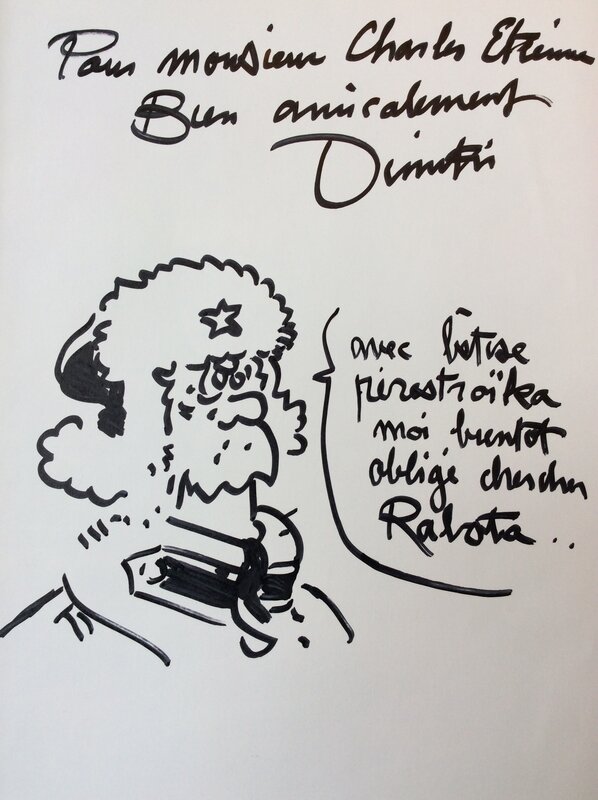 Pour monsieur Charles Etienne
Bien amicalement
Dimitri
avec bêtise
pérestroïka
moi bientot
obligé chercher
Rabota ..